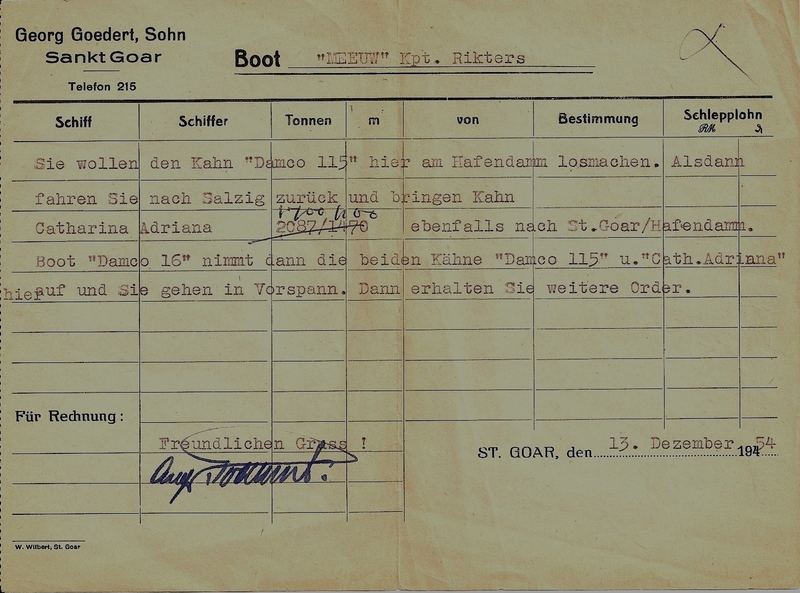 Georg Goedert, Sohn
Sankt Goar
Telefon 215
Boot "MEEUW" Kpt. Rikters
Schiff Schiffer Tonnen m von Bestimmung Schlepplohn
RM ₰
Sie wollen den Kahn "Damco 115" hier am Hafendamm losmachen. Alsdann
fahren Sie nach Salzig zurück und bringen Kahn
Catharina Adriana 2087/1470 ebenfalls nach St.Goar/Hafendamm.
Boot "Damco 16" nimmt dann die beiden Kähne "Damco 115" u."Cath.Adriana"
hier auf und Sie gehen in Vorspann. Dann erhalten Sie weitere Order.
Für Rechnung:
Freundlichen Gruss !
ST. GOAR, den 13. Dezember 1954
W. Wilbert, St. Goar